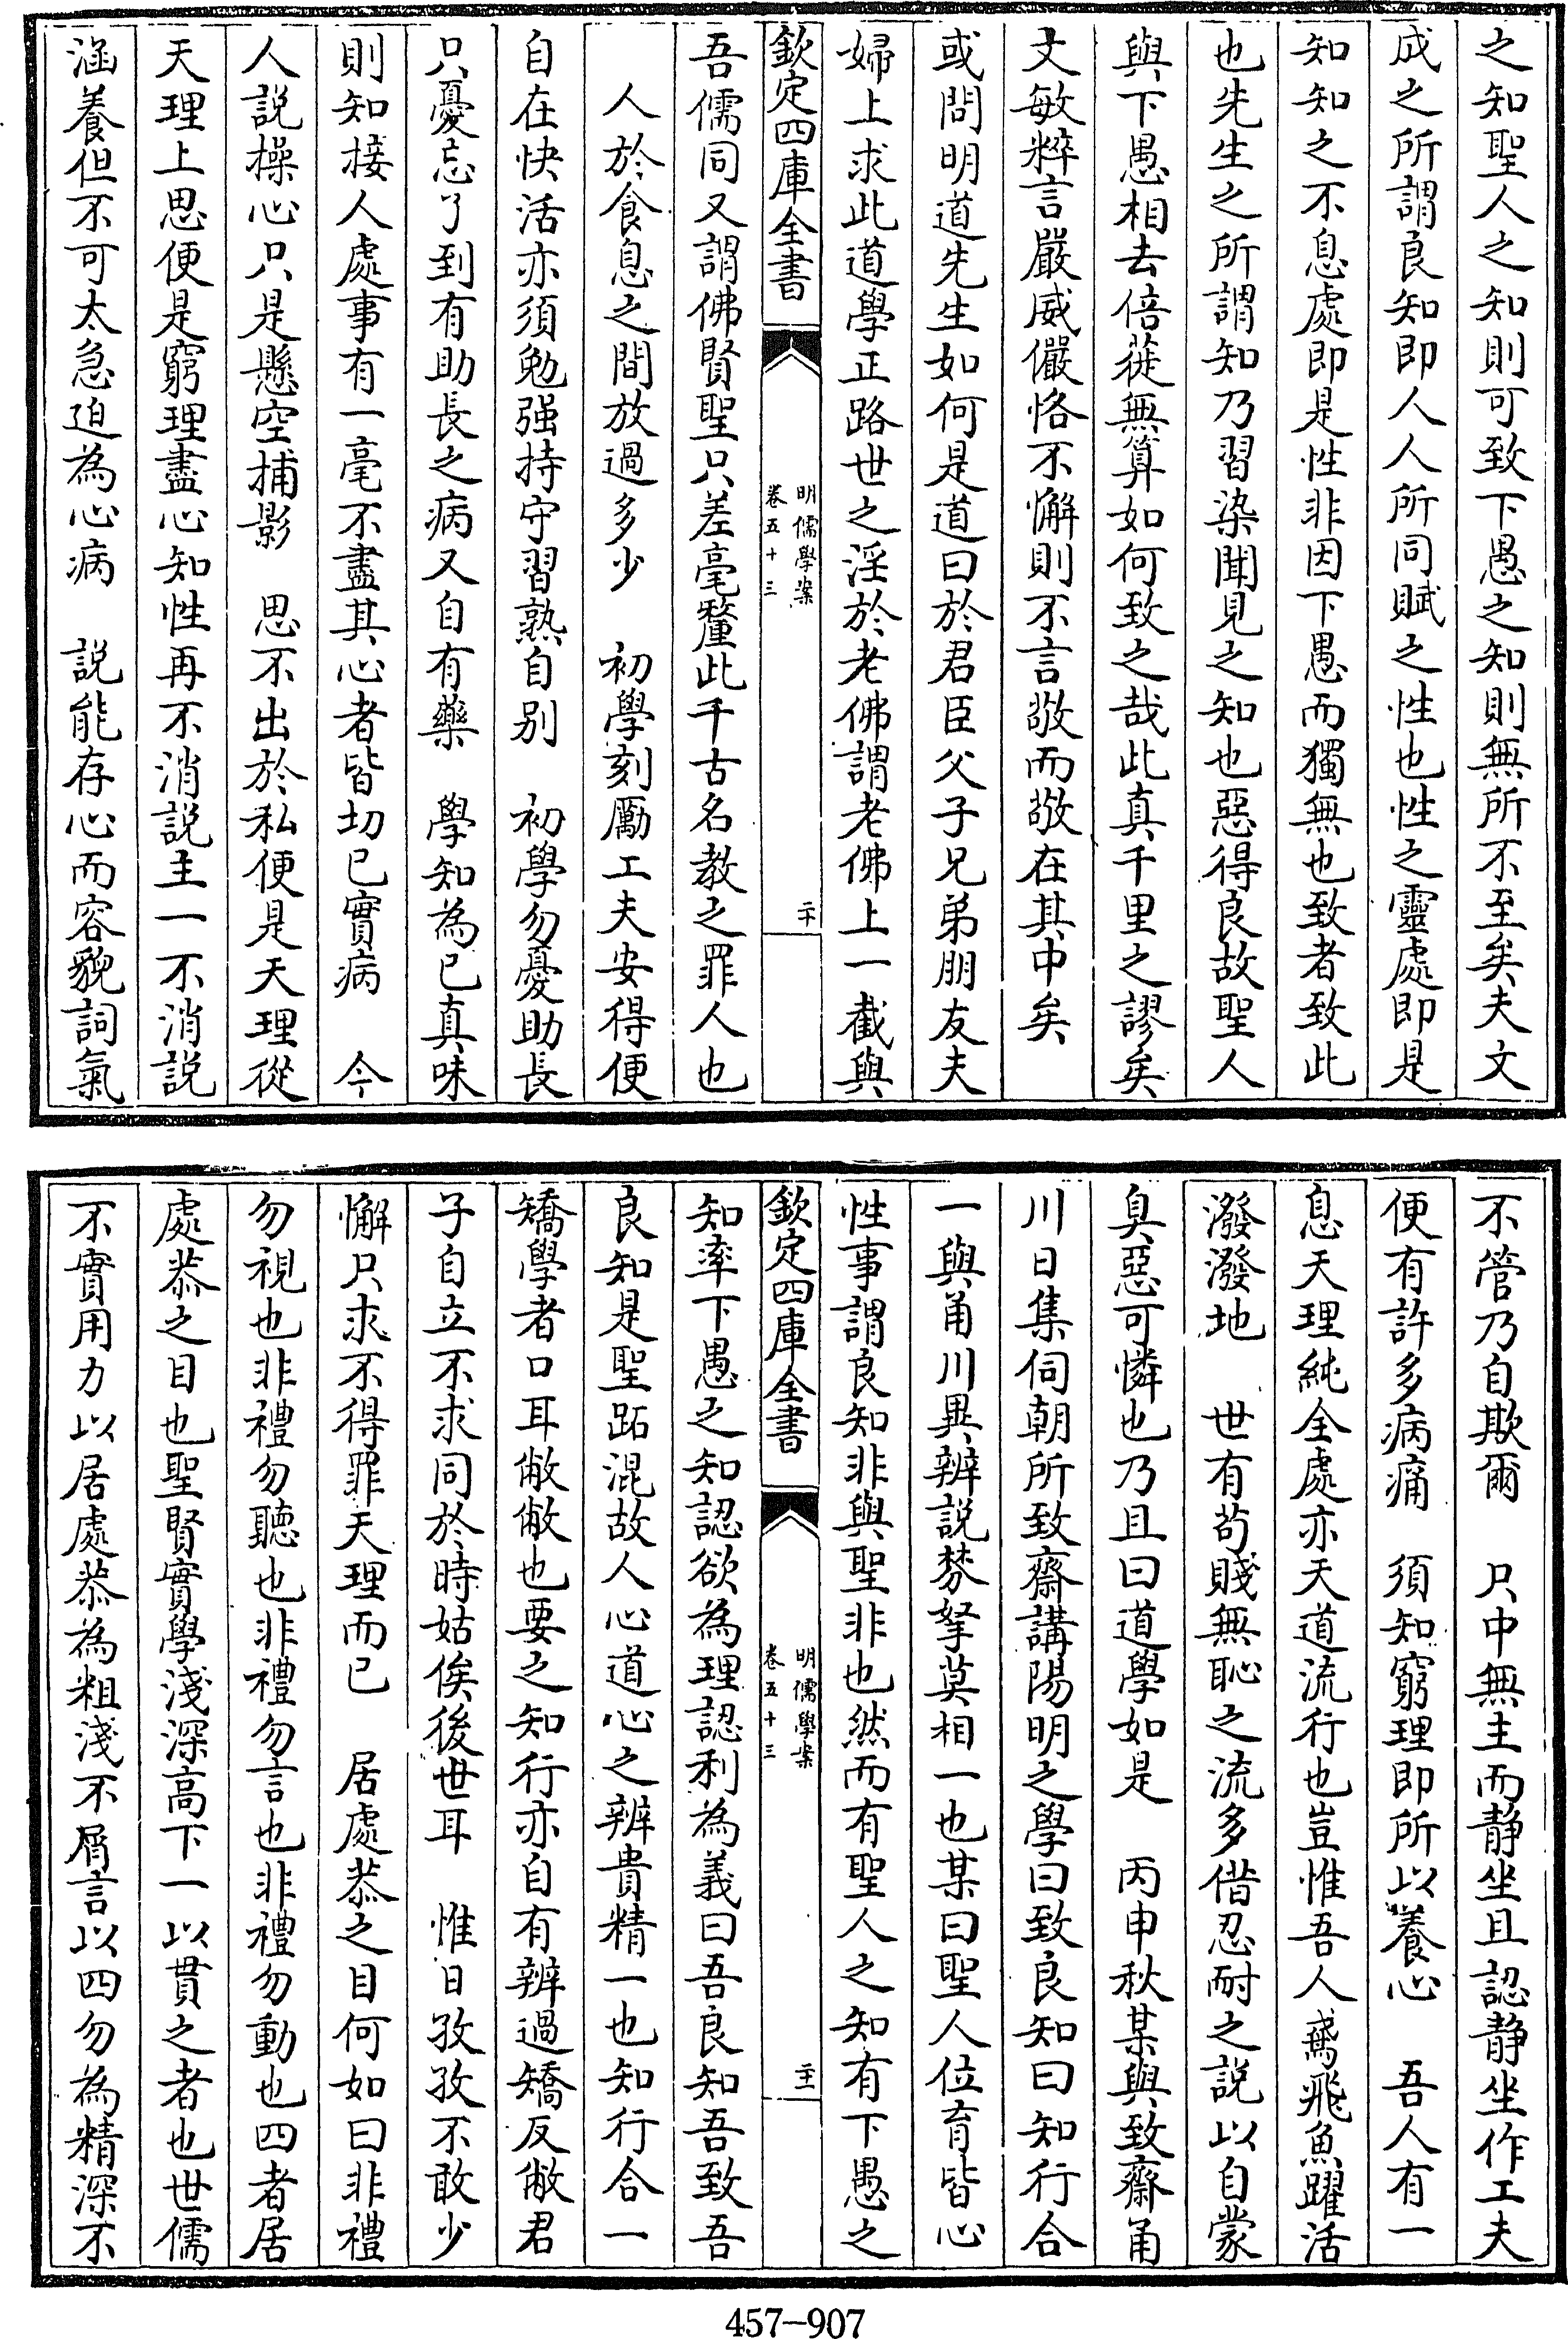 之知聖人之知則可致下愚之知則無所不至矣夫文
成之所謂良知即人人所同賦之性也性之靈處即是
知知之不息處即是性非因下愚而獨無也致者致此
也先生之所謂知乃習染聞見之知也惡得良故聖人
與下愚相去倍蓰無算如何致之哉此真千里之謬矣
文敏粹言嚴威儼恪不懈則不言敬而敬在其中矣
或問明道先生如何是道曰於君臣父子兄弟朋友夫
婦上求此道學正路世之淫於老佛謂老佛上一截與
欽定四庫全書
明儒學案
卷五十三
二十
吾儒同又謂佛賢聖只差毫釐此千古名教之罪人也
人於食息之間放過多少　初學刻厲工夫安得便
自在快活亦須勉强持守習熟自別　初學勿憂助長
只憂忘了到有助長之病又自有藥　學知為已真味
則知接人處事有一毫不盡其心者皆切已實病　今
人說操心只是懸空捕影　思不出於私便是天理從
天理上思便是窮理盡心知性再不消說主一不消説
涵養但不可太急迫為心病　説能存心而容貌詞氣
不管乃自欺爾　只中無主而靜坐且認靜坐作工夫
便有許多病痛　須知窮理即所以養心　吾人有一
息天理純全處亦天道流行也豈惟吾人鳶飛魚躍活
潑潑地　世有苟賤無恥之流多借忍耐之說以自蒙
臭惡可憐也乃且曰道學如是　丙申秋某與致齋甬
川日集伺朝所致齋講陽明之學曰致良知曰知行合
一與甬川異辨説棼拏莫相一也某曰聖人位育皆心
性事謂良知非與聖非也然而有聖人之知有下愚之
欽定四庫全書
明儒學案
卷五十三
二十一
知率下愚之知認欲為理認利為義曰吾良知吾致吾
良知是聖跖混故人心道心之辨貴精一也知行合一
矯學者口耳敝敝也要之知行亦自有辨過矯反敝君
子自立不求同於時姑俟後世耳　惟日孜孜不敢少
懈只求不得罪天理而已　居處恭之目何如曰非禮
勿視也非禮勿聽也非禮勿言也非禮勿動也四者居
處恭之目也聖賢實學淺深高下一以貫之者也世儒
不實用力以居處恭為粗淺不屑言以四勿為精深不
457-907